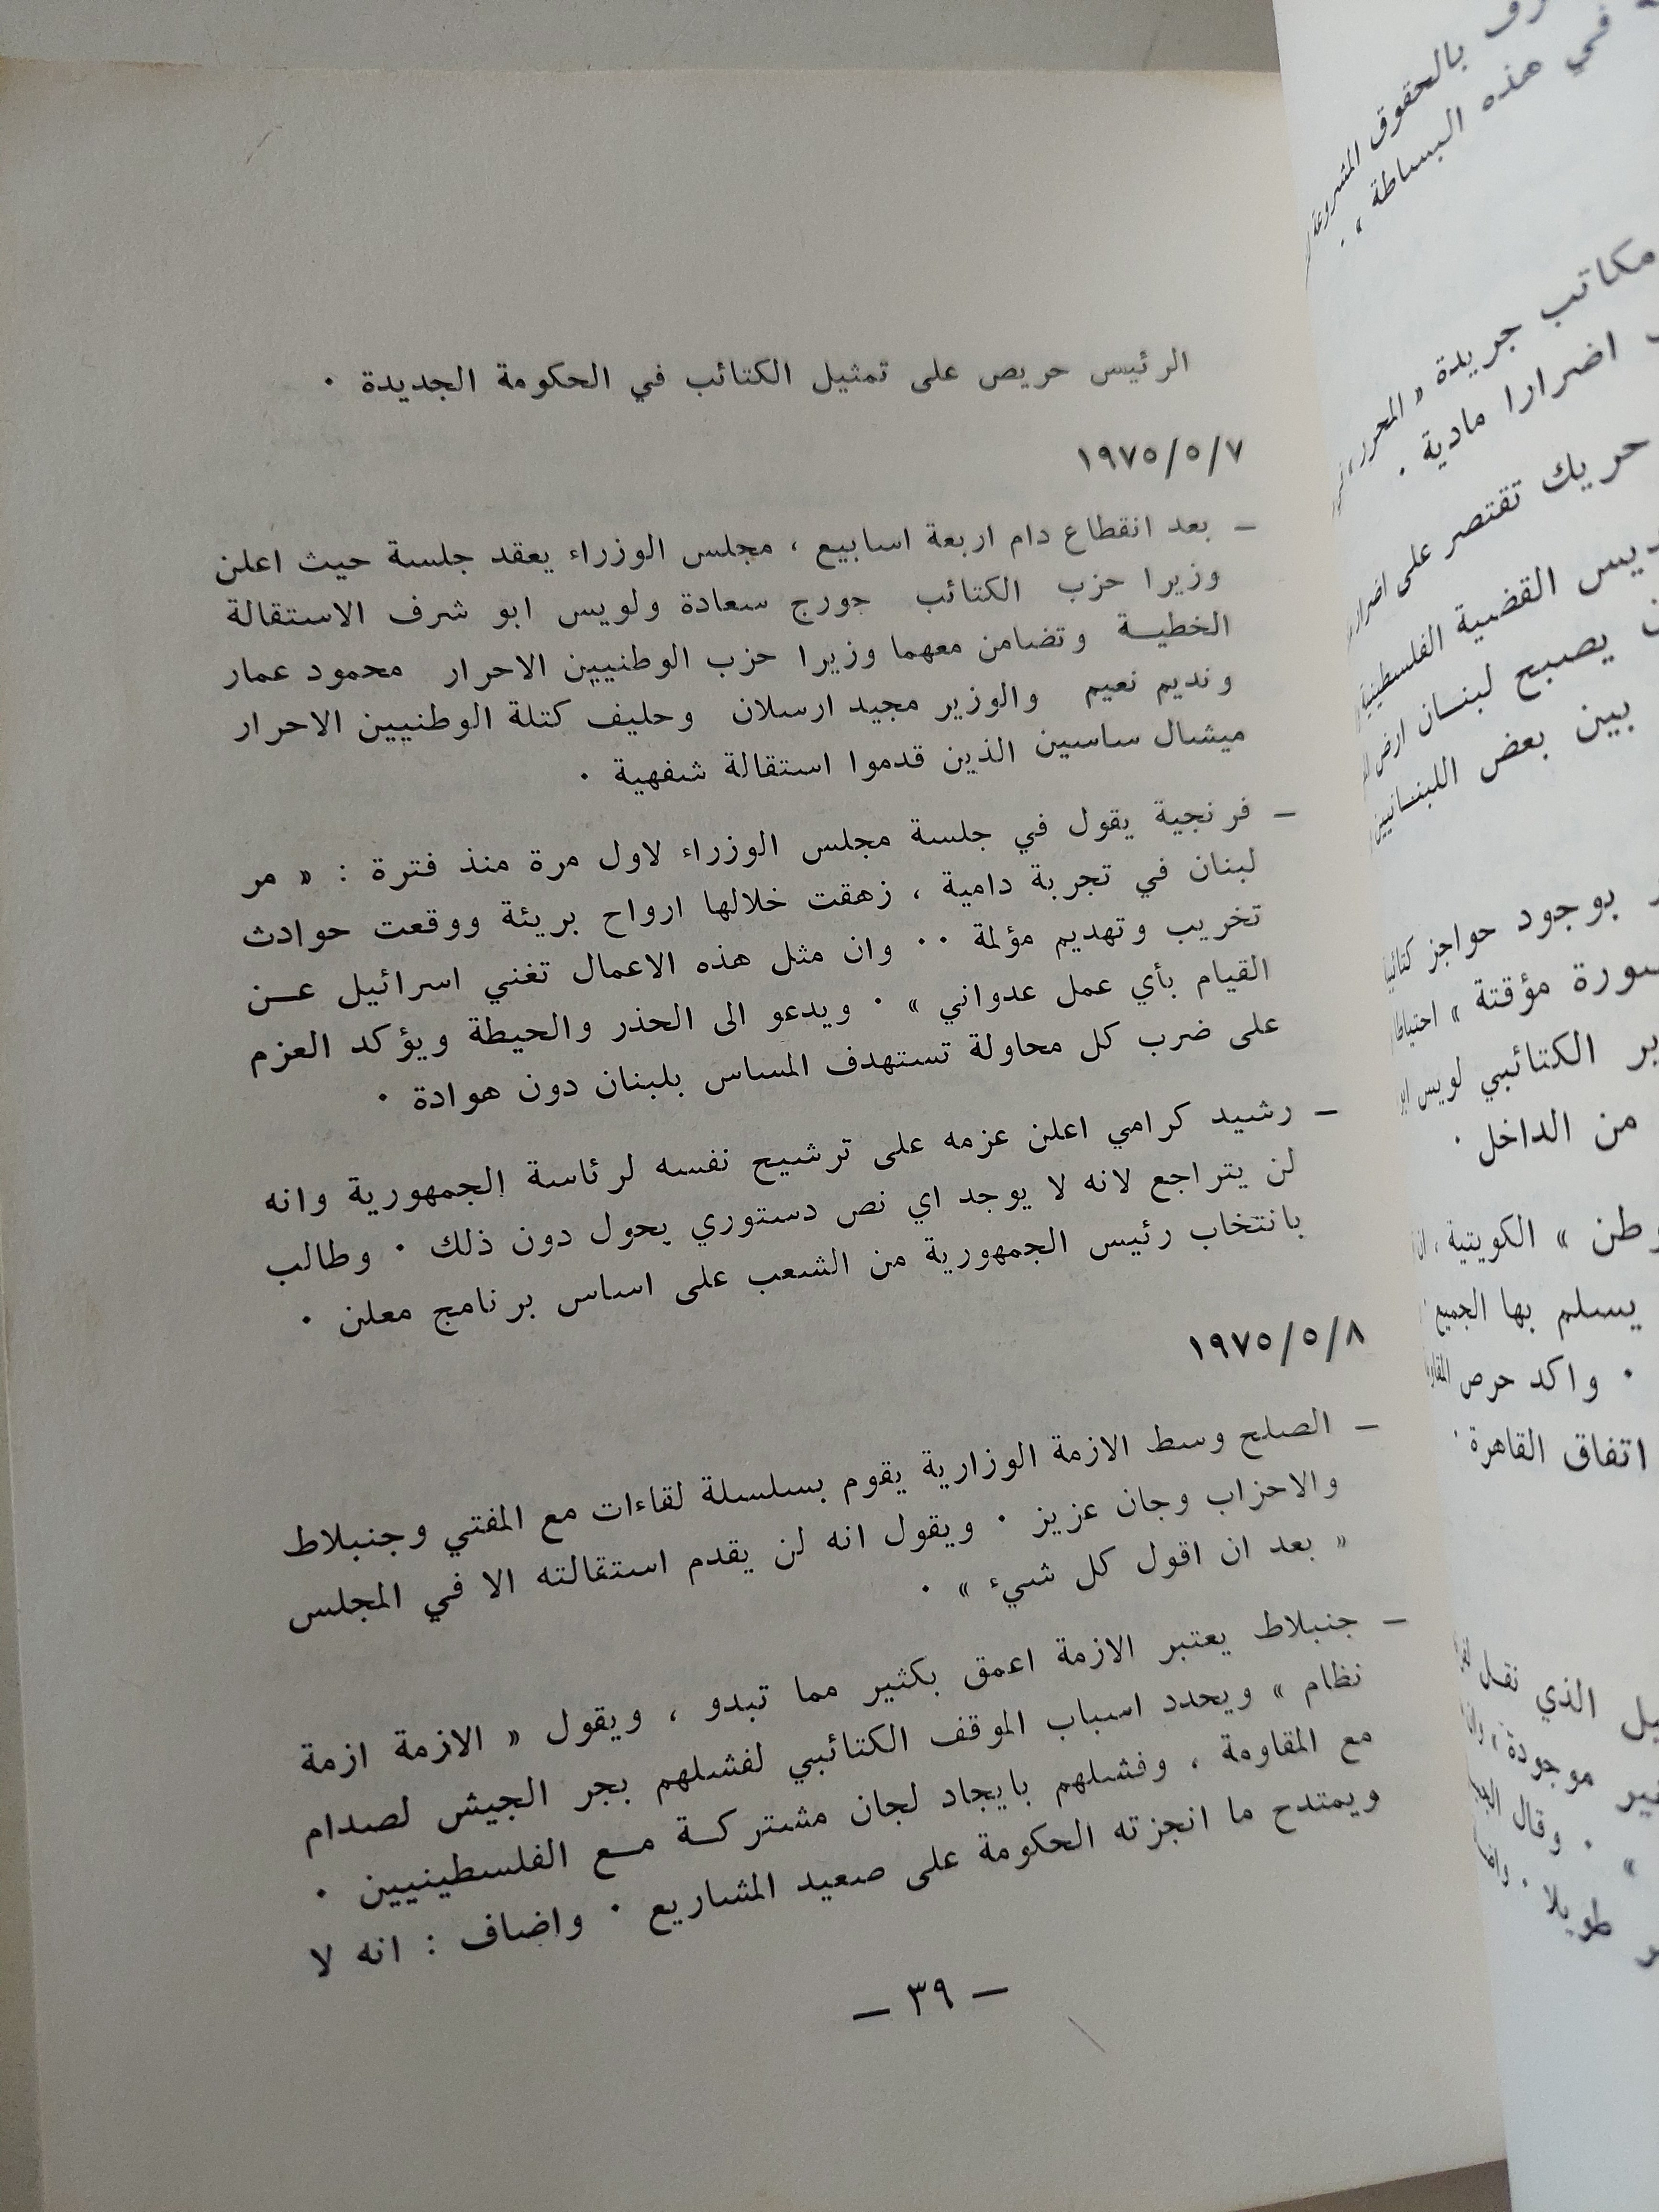 الرئيس حريص على تمثيل الكتائب في الحكومة الجديدة ٠
١٩٧٥/٥/٧
— بعد انقطاع دام اربعة اسابيع ، مجلس الوزراء يعقد جلسة حيث اعلن
وزيرا حزب الكتائب جورج سعادة ولويس ابو شرف الاستقالة
الخطيـة وتضامن معهما وزيرا حزب الوطنيين الاحرار محمود عمار
ونديم نعيم والوزير مجيد ارسلان وحليف كتلة الوطنيين الاحرار
ميشال ساسين الذين قدموا استقالة شفهية ٠
— فرنجية يقول في جلسة مجلس الوزراء لاول مرة منذ فترة : « مر
لبنان في تجربة دامية ، زهقت خلالها ارواح بريئة ووقعت حوادث
تخريب وتهديم مؤلمة ٠٠ وان مثل هذه الاعمال تغني اسرائيل عـن
القيام بأي عمل عدواني » ٠ ويدعو الى الحذر والحيطة ويؤكد العزم
على ضرب كل محاولة تستهدف المساس بلبنان دون هوادة ٠
— رشيد كرامي اعلن عزمه على ترشيح نفسه لرئاسة الجمهورية وانه
لن يتراجع لانه لا يوجد اي نص دستوري يحول دون ذلك ٠ وطالب
بانتخاب رئيس الجمهورية من الشعب على اساس برنامج معلن ٠
١٩٧٥/٥/٨
— الصلح وسط الازمة الوزارية يقوم بسلسلة لقاءات مع المفتي وجنبلاط
والاحزاب وجان عزيز ٠ ويقول انه لن يقدم استقالته الا في المجلس
« بعد ان اقول كل شيء » ٠
— جنبلاط يعتبر الازمة اعمق بكثير مما تبدو ، ويقول « الازمة ازمة
نظام » ويحدد اسباب الموقف الكتائبي لفشلهم بجر الجيش لصدام
مع المقاومة ، وفشلهم بايجاد لجان مشتركـة مـع الفلسطينيين ٠
ويمتدح ما انجزته الحكومة على صعيد المشاريع ٠ واضاف : انه لا
— ٣٩ —
بالحقوق المشروعة
في هذه البساطة » ٠
مكاتب جريدة « المحرر »
اضرارا مادية ٠
حريك تقتصر على اضرار
القضية الفلسطينية
يصبح لبنـان ارض
بين بعض اللبنـانيين
بوجود حواجز
مؤقتة » احتياطا
الكتائبي لويس ابو
من الداخل ٠
» الكويتية ، ان
يسلم بها الجميع
٠ واكد حرص
اتفاق القاهرة ٠
الذي نقـل
موجودة »
» ٠ وقال
طويلا ٠